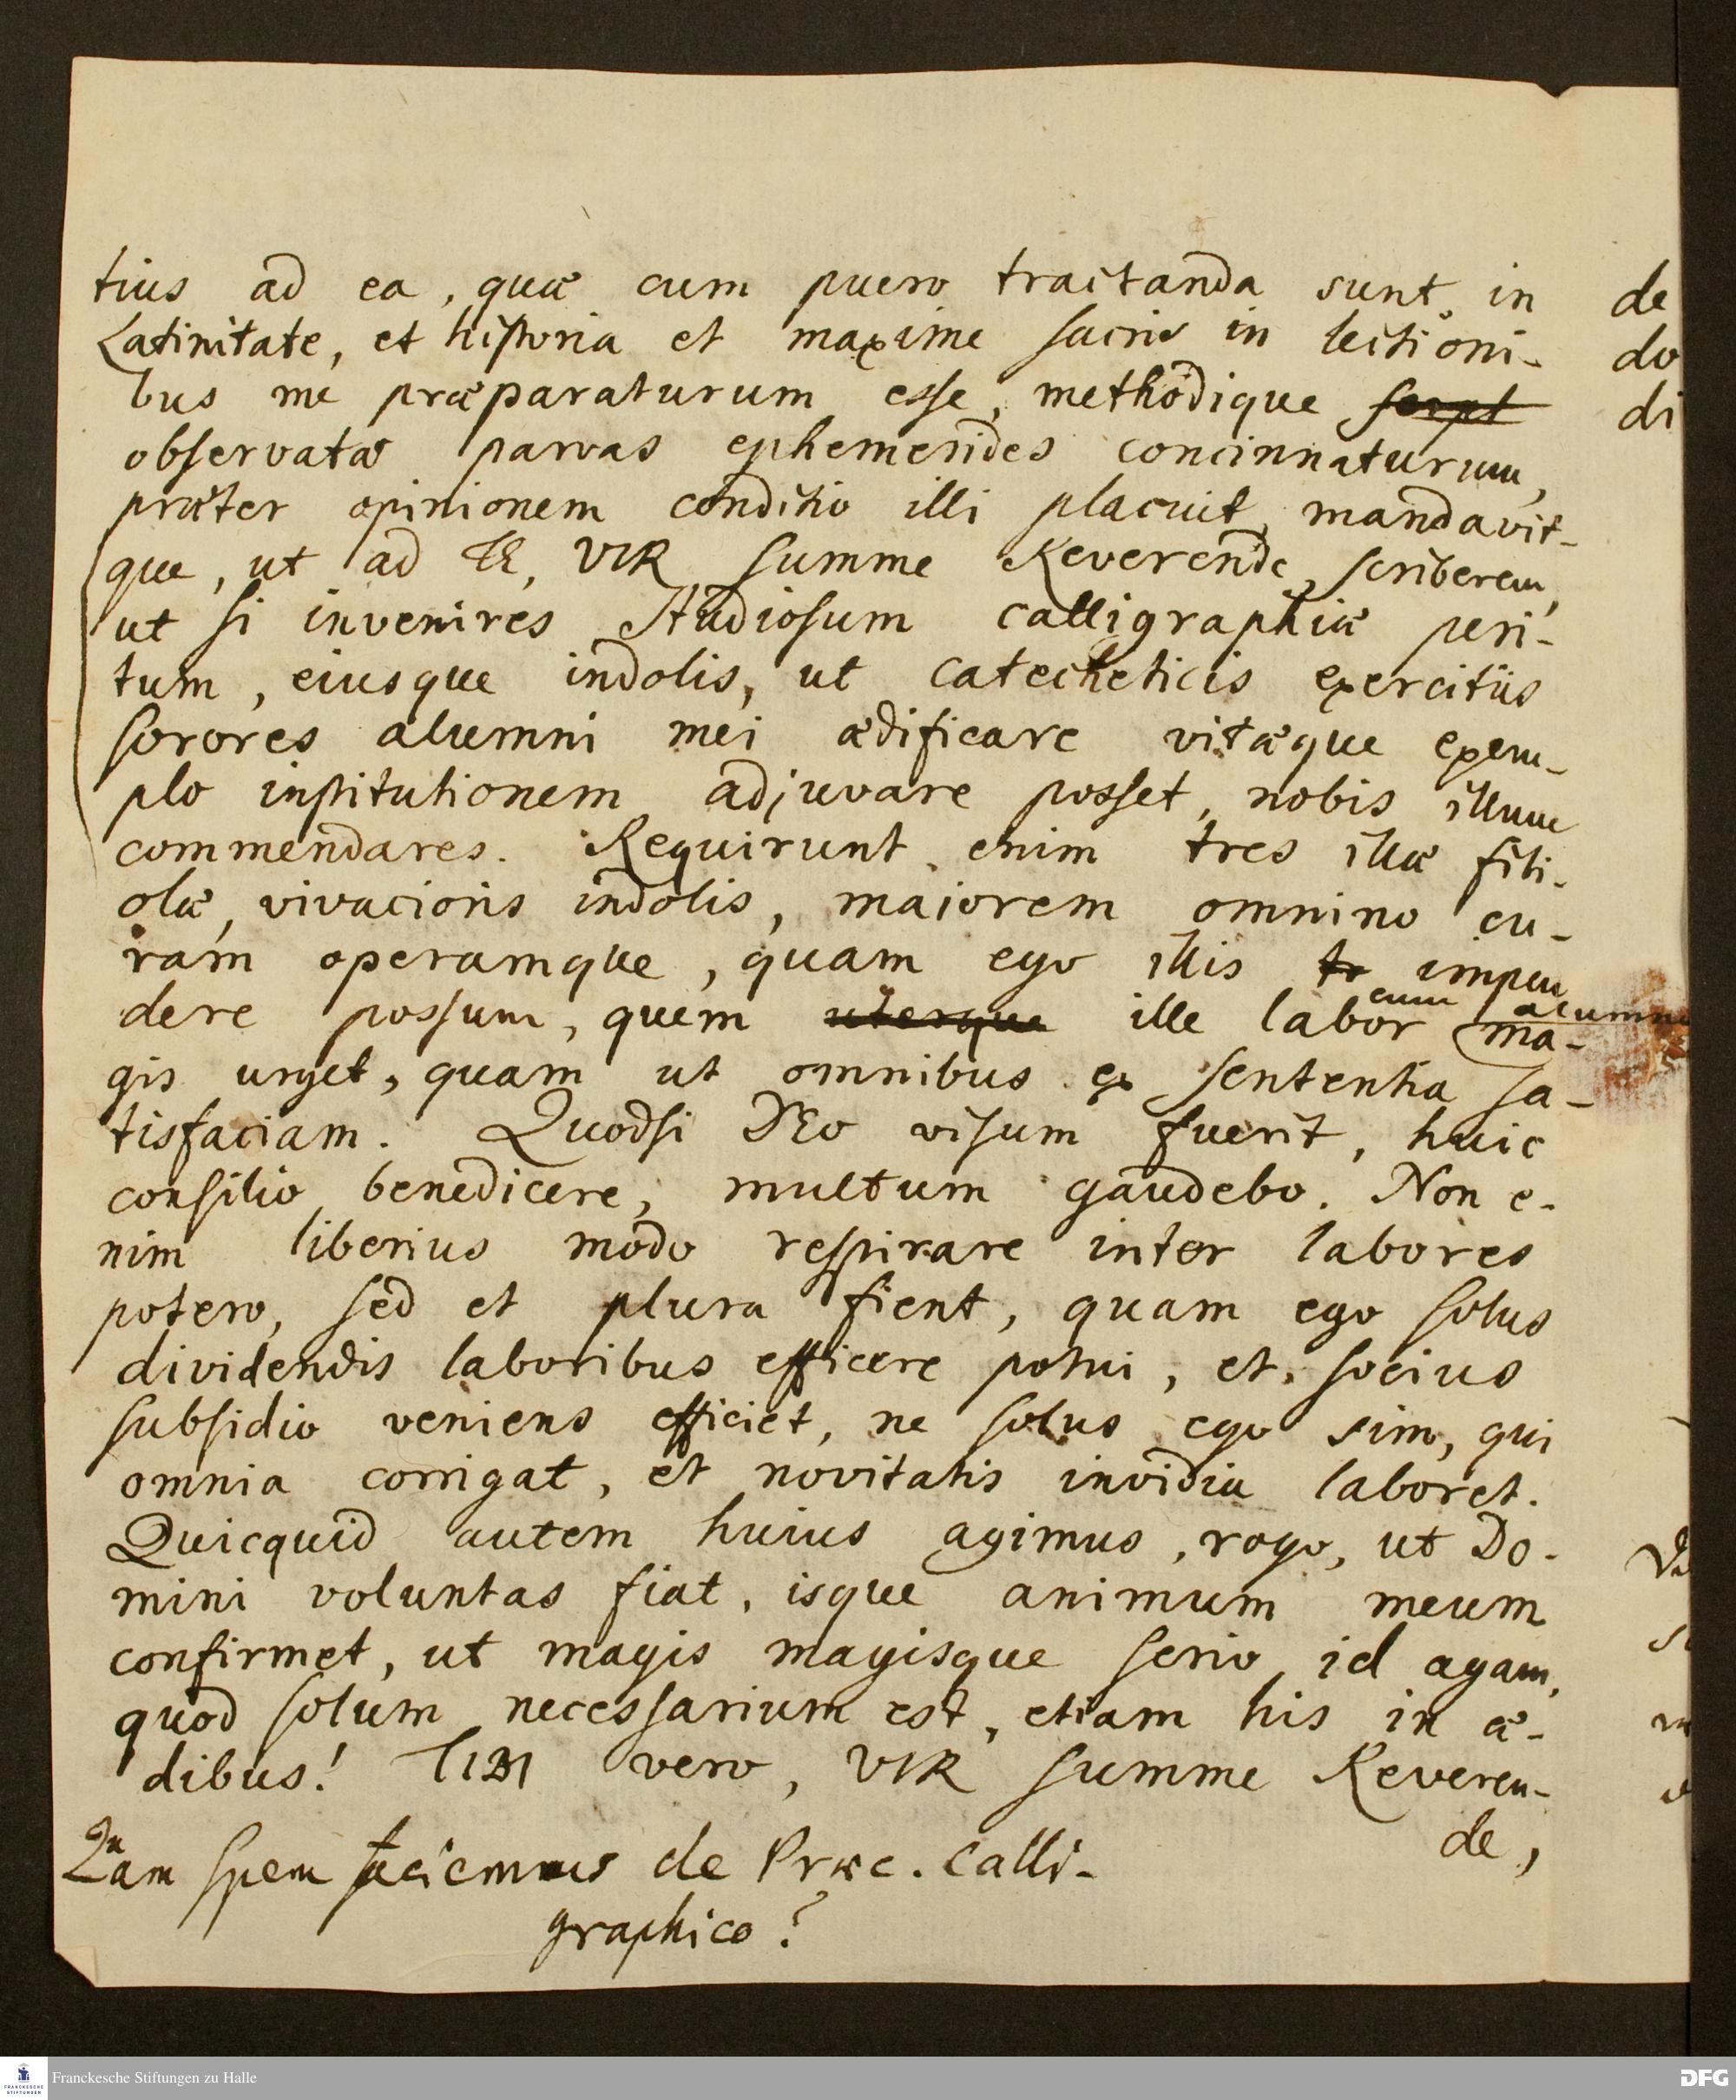 tius ad ea, quæ cum puero tractanda sunt, in
Latinitate, et historia et maxime sacris in lectioni-
bus me præparaturum esse, methodique
observatæ parvas ephemerides concinnaturum,
præter opinionem conditio illi placuit, mandavit-
que, ut ad TE, VIR summe Reverende, scriberem,
ut si invenires Studiosum calligraphiæ peri-
tum, eiusque indolis, ut catecheticis exercitiis
sorores alumni mei ædificare vitæque exem-
plo institutionem adjuvare posset, nobis illum
commendares. Requirunt enim tres illæ fili-
olæ, vivacioris indolis, maiorem omnino cu-
ram operamque, quam ego illis tr impen
dere possum, quem uterque ille labor cum alumno ma-
gis urget, quam ut omnibus ex sententia sa-
tisfaciam. Quodsi DEo visum fuerit, huic
consilio benedicere, multum gaudebo. Non e-
nim liberius modo respirare inter labores
potero, sed et plura fient, quam ego solus
dividendis laboribus efficere potui, et, socius
subsidio veniens efficiet, ne solus ego sim, qui
omnia corrigat, et novitatis invidia laboret.
Quicquid autem huius agimus, rogo, ut Do-
mini voluntas fiat, isque animum meum
confirmet, ut magis magisque serio id agam,
quod solum necessarium est, etiam his in æ-
dibus! TIBI vero, VIR summe Reveren-
de,
Quam spem faciemus de Præc. Calli-
graphico?
de
do
di
Franckesche Stiftungen zu Halle
FRANCKESCHE STIFTUNGEN
DFG